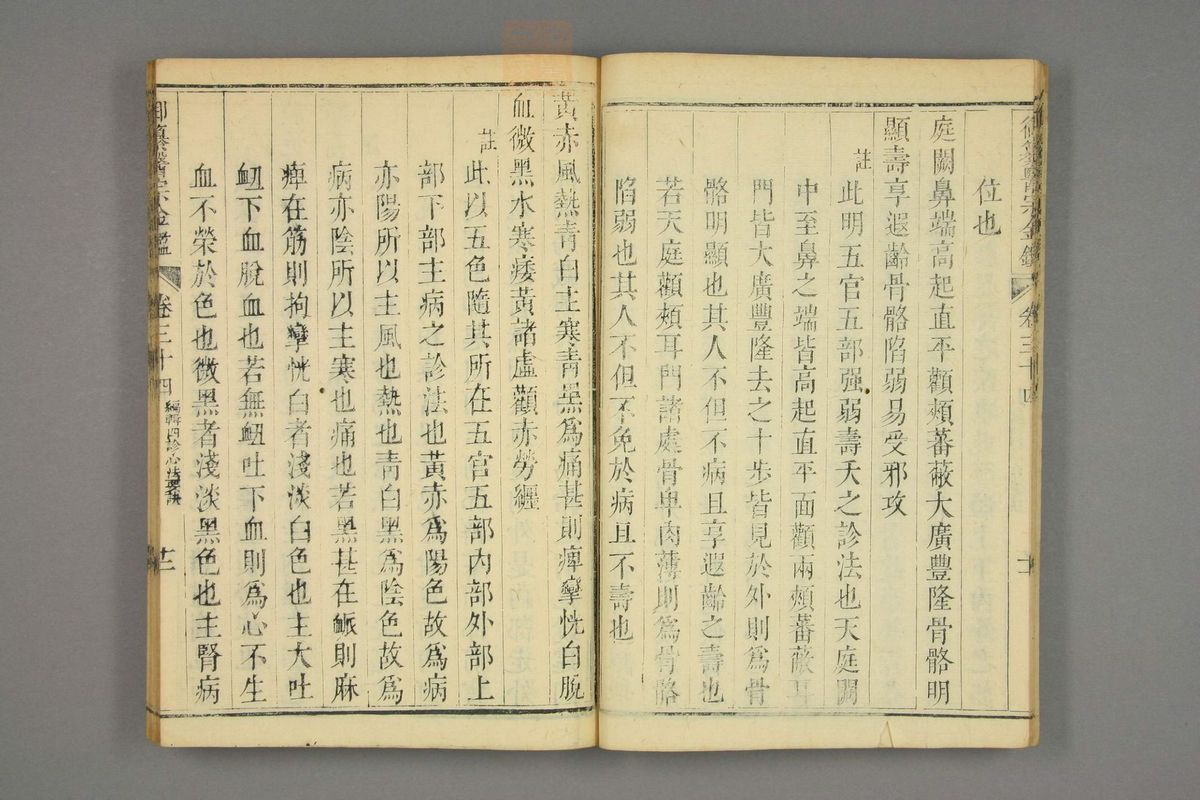 御纂醫宗金鑑 卷三十四 十一
位也
庭闕鼻端高起直平顴頰蕃蔽大廣豐隆骨骼明
顯壽享遐齡骨骼陷弱易受邪攻
註此明五官五部强弱壽夭之診法也天庭闕
中至鼻之端皆高起直平面顴兩頰蕃蔽耳
門皆大廣豐隆去之十步皆見於外則爲骨
骼明顯也其人不但不病且享遐齡之壽也
若天庭顴頰耳門諸處骨卑肉薄則爲骨骼
陷弱也其人不但不免於病且不壽也
黃赤風熱青白主寒青黑爲痛甚則痺攣恍白脫
血微黑水寒痿黃諸虛顴赤勞纏
註此以五色隨其所在五官五部內部外部上
部下部主病之診法也黃赤爲陽色故爲病
亦陽所以主風也熱也青白黑爲陰色故爲
病亦陰所以主寒也痛也若黑甚在脈則麻
痺在筋則拘攣恍白者淺淡白色也主大吐
衄下血脫血也若無衄吐下血則爲心不生
血不榮於色也微黑者淺淡黑色也主腎病
御纂醫宗金鑑 卷三十四 編輯四診心法要訣 十二